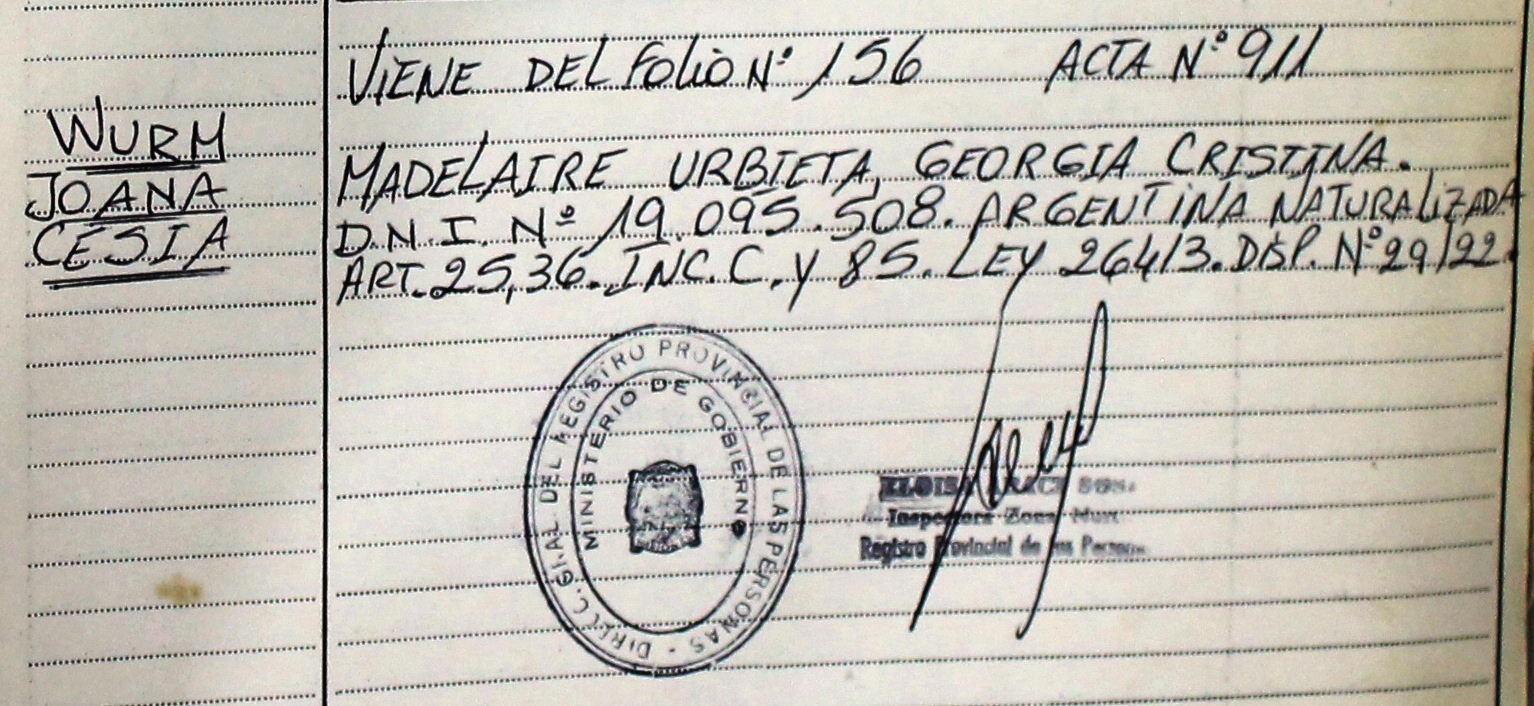 VIENE DEL FOLIO Nº 156 ACTA Nº 911
WURM
JOANA
CESIA
MADELAIRE URBIETA, GEORGIA CRISTINA.
D.N.I. Nº 19.095.508. ARGENTINA NATURALIZADA
ART. 25,36. INC. C. Y 85. LEY 26413. DISP. Nº 29/22.
DIRECC. GRAL. DEL REGISTRO PROVINCIAL DE LAS PERSONAS -
MINISTERIO DE GOBIERNO
ELOISA
Inspectora Zona
Registro Provincial de las Personas